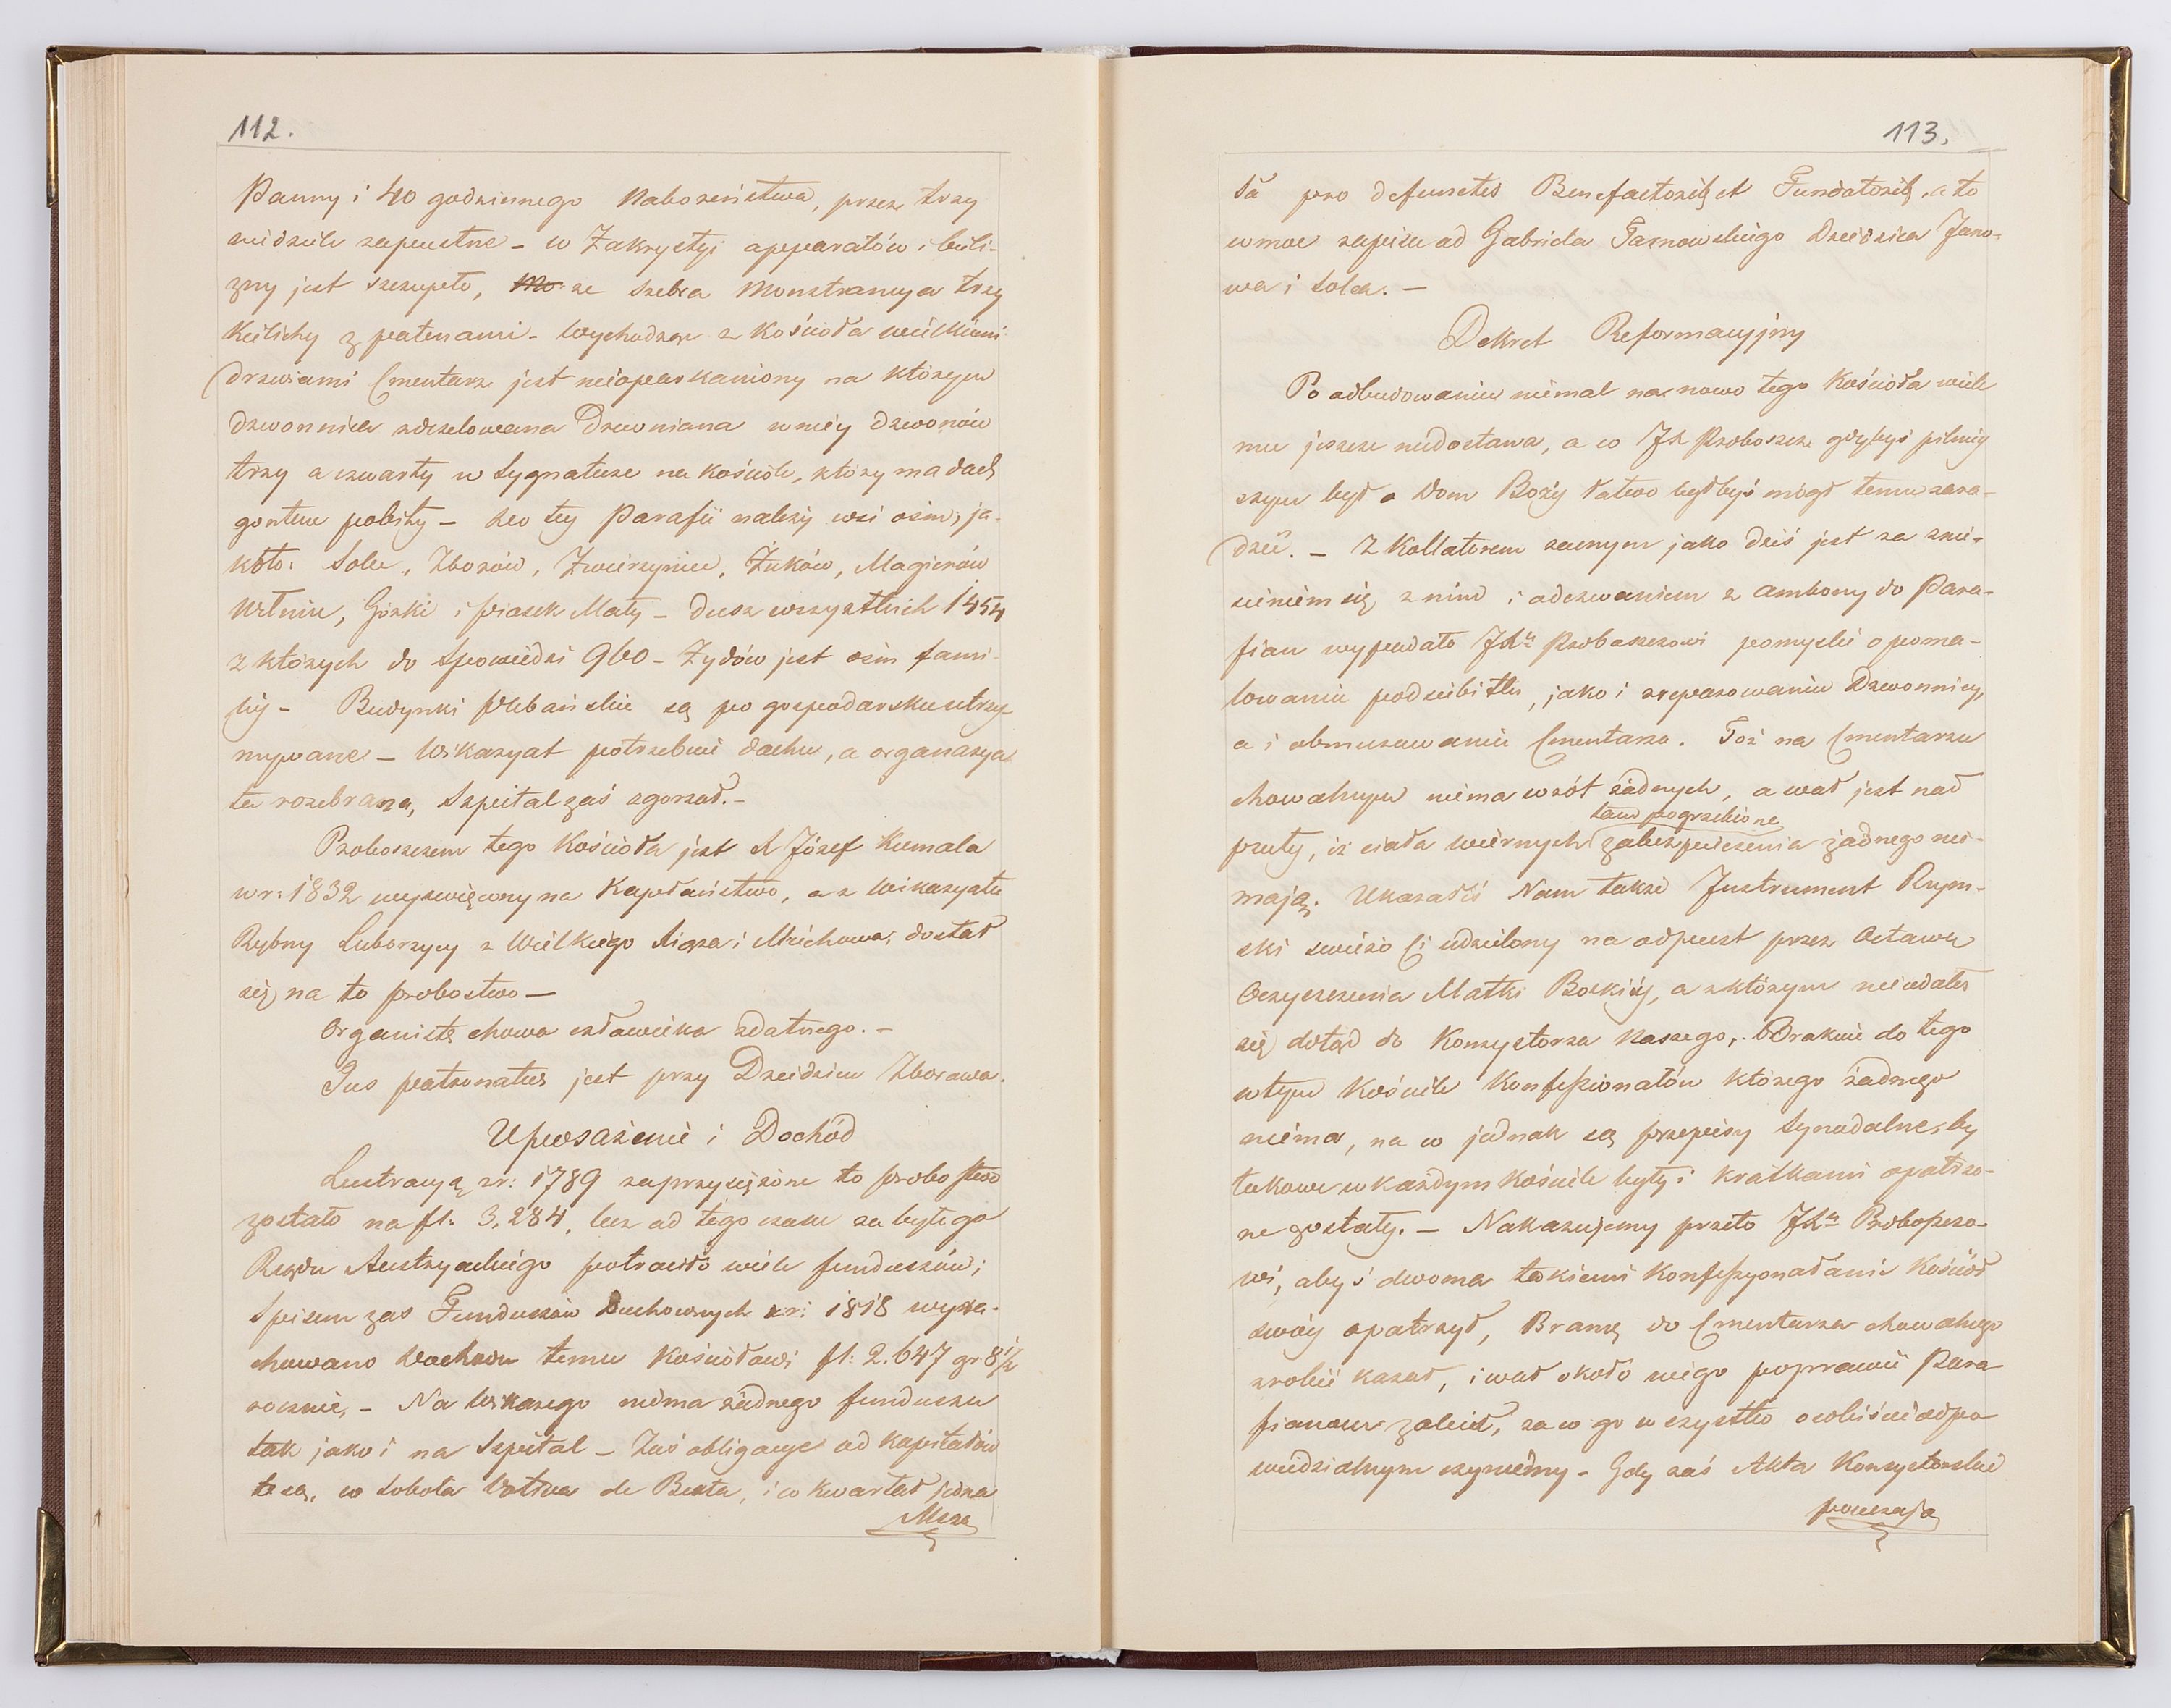 112.
Panny i 40 godzinnego Nabożeństwa, przez trzy
niedziele zapustne – w Zakrystyi apparatów i bieli-
zny jest szczupło, ze srebra Monstrancya trzy
Kielichy z patenami – Wychodząc z Kościoła wielkiemi
drzwiami Cmentarz jest nieoparkaniony na którym
dzwonnica zdezelowana drewniana w niéy dzwonów
trzy a czwarty w Sygnaturze na kościele, który ma dach
gontem pobity – Do tey Parafii należy wsi ośm, ja-
koto: Solec, Zborów, Zwierzyniec, Żuków, Magierów
Włnin, Górki i Piasek Mały – dusz wszystkich 1454
z których do Spowiedzi 960 – Żydów jest ośm fami-
lij – Budynki Plebańskie są po gospodarsku utrzy-
mywane – Wikaryat potrzebuie dachu, a organarya
ta rozebrana, Szpital zaś zgorzał. –
Proboszczem tego Kościoła jest X Józef Kumala
w r: 1832 wyświęcony na Kapłaństwo, a z Wikaryatu
Rybny Luborzycy z Wielkiego Xiąża i Miechowa, dostał
się na to probostwo —
Organistę chowa człowieka zdatnego. –
Jus patronatus jest przy Dziedzicu Zborowa.
Uposażenie i Dochód
Lustracyą z r: 1789 zaprzysiężone to probostwo
zostało na fl. 3,284, lecz od tego czasu za byłego
Rządu Austryackiego potraciło wiele funduszów;
Spisem zaś Funduszów Duchownych z r: 1818 wyra-
chowano dochodu temu Kościołowi fl: 2.647 gr 8 1/2
rocznie, – Na Wikarego niéma żadnego funduszu
tak jako i na Szpital – Zaś obligacye od kapitałów
te są, co Sobota Votiva de Beata, i co kwartał jedna
Msza
113.
ta pro defunctis Benefactorib et Fundatorib, a to
w moc zapisu od Gabriela Tarnowskiego Dziedzica Jano-
wa i Solca. –
Dekret Reformacyjny
Po odbudowaniu niemal na nowo tego Kościoła wiele
mu jeszcze niedostawa, a co JX Proboszcz gdybyś pilniéy
szym był o Dom Boży łatwo byłbyś mógł temu zara-
dzić. – Z Kollatorem zacnym jako dziś jest za znie-
sieniem się z nim i odezwaniem z ambony do Para-
fian wypadało JXu Proboszczowi pomyśleć o poma-
lowaniu podsiebitki, jako i zreparowaniu Dzwonnicy,
a i obmurowaniu Cmentarza. Toż na Cmentarzu
chowalnym niéma wrót żadnych, a wał jest nad
tam pogrzebione
psuty, iż ciała wiernych zabezpieczenia żadnego nie-
mają. Ukazałeś Nam także Instrument Rzym-
ski świeżo Ci udzielony na odpust przez Octawę
Oczyszczenia Matki Boskiéy, a z którym nie udałeś
się dotąd do Konsystorza Naszego, Brakuie do tego
w tym Kościele Konfessionałów którego żadnego
niéma, na co jednak są przepisy Synodalne, by
takowe w każdym Kościele były i kratkami opatrzo-
ne zostały. – Nakazujemy przeto JXu Proboszczo-
wi, abyś dwoma takiemi Konfessyonałami Kościół
swóy opatrzył, Bramę do Cmentarza chowalnego
zrobić kazał, i wał około niego poprawić Para
fianom zalecił, za co go wszystko osobiście odpo
wiedzialnym czyniémy – Gdy zaś Akta Konsystorskie
pouczają